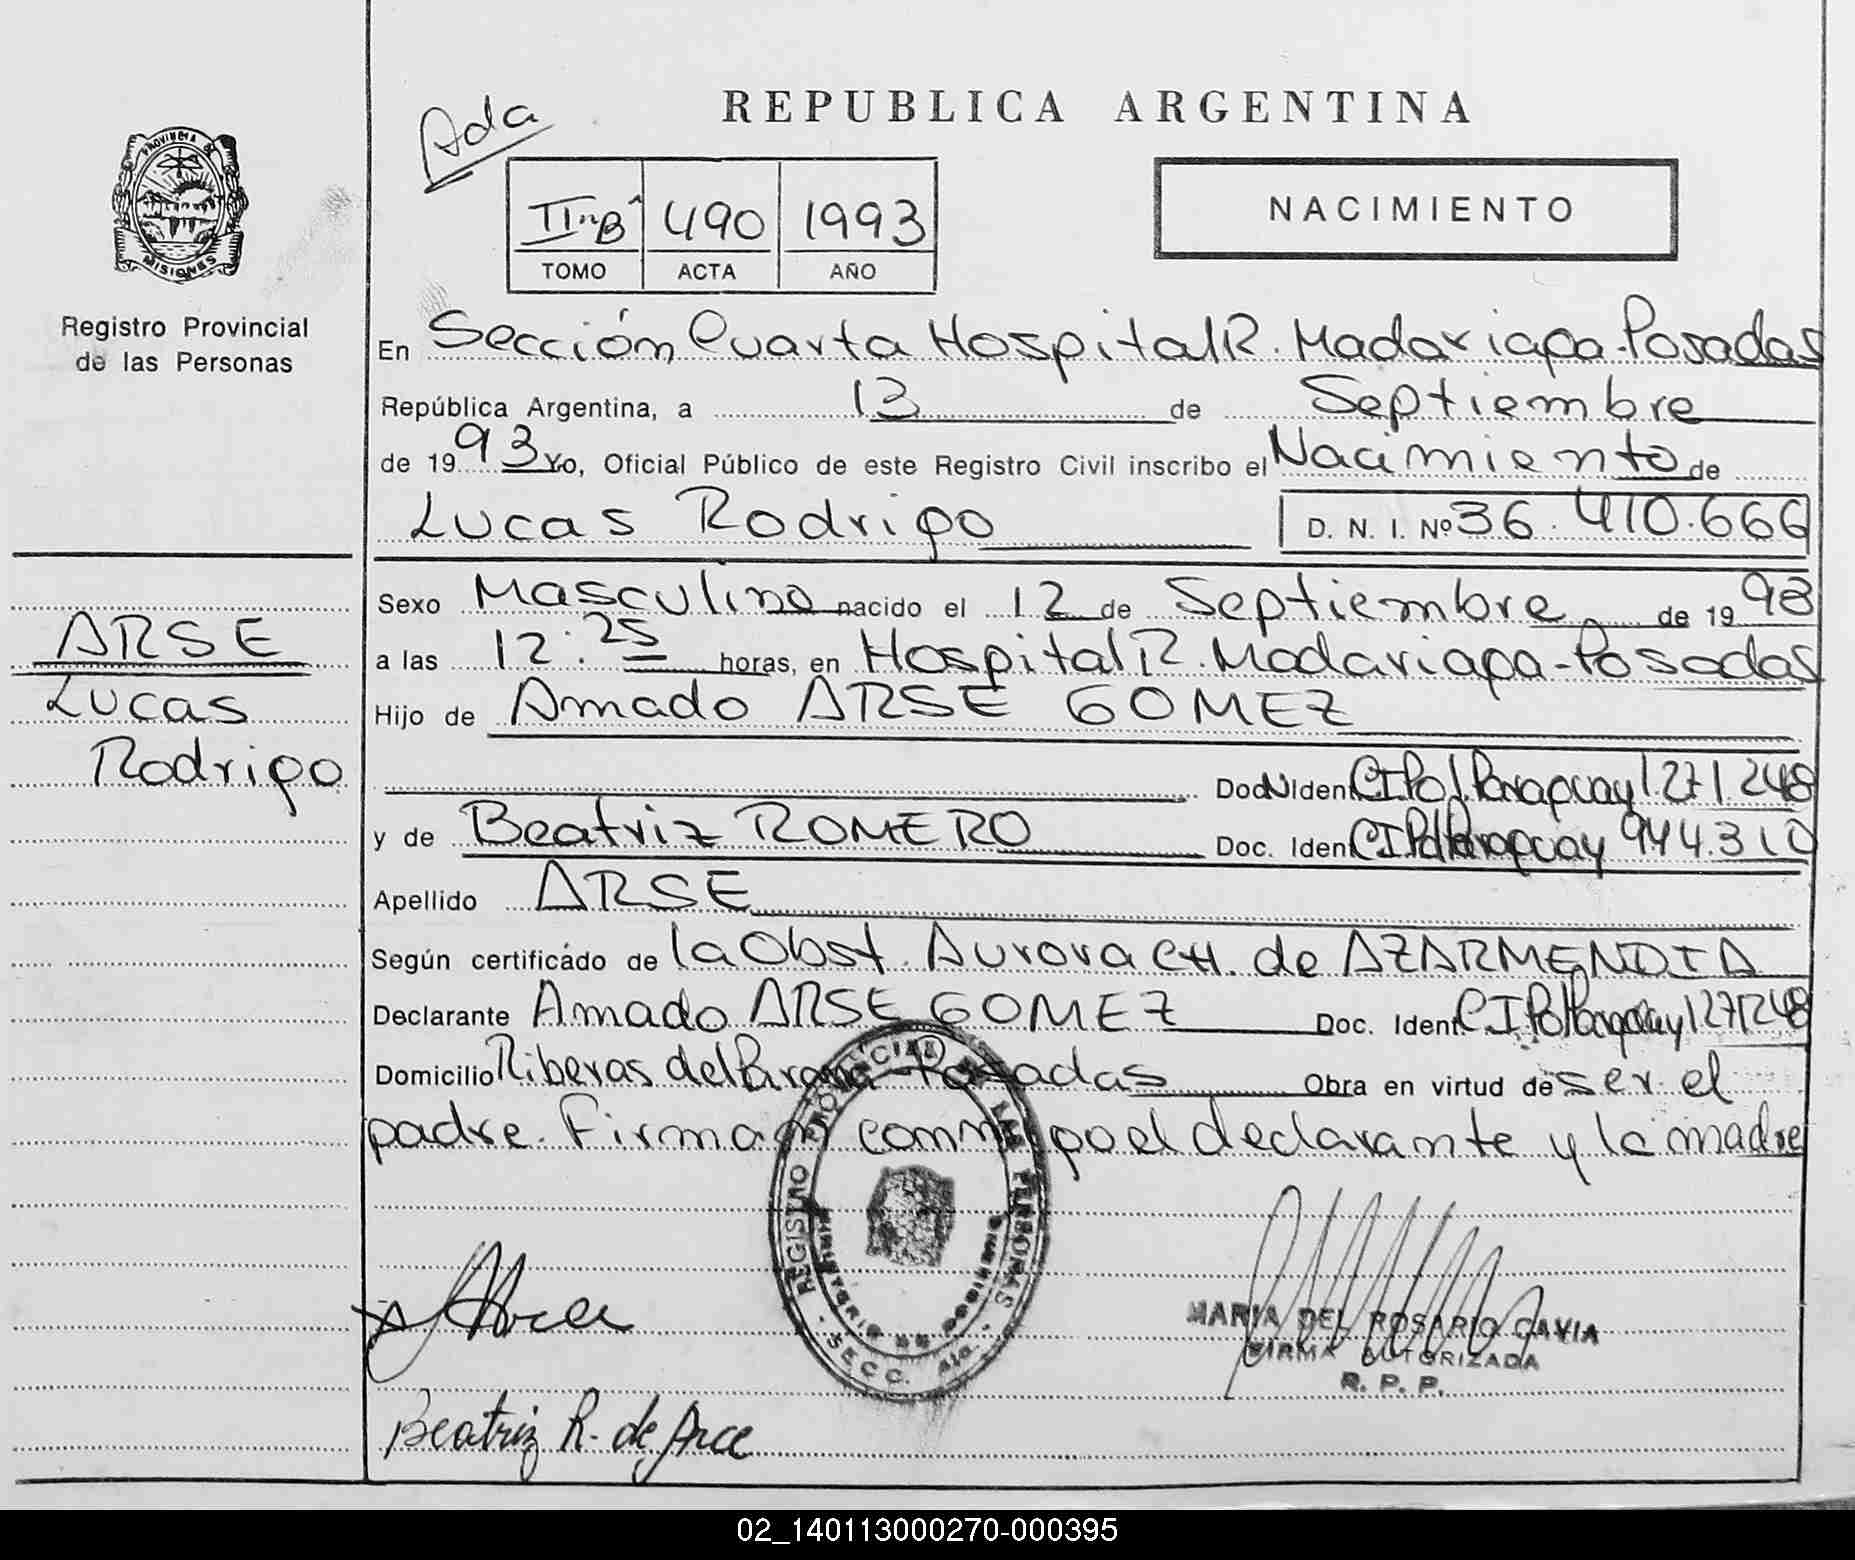 REPUBLICA ARGENTINA
Ada
PROVINCIA DE
MISIONES
Registro Provincial
de las Personas
II "B" 490 1993
TOMO ACTA AÑO
NACIMIENTO
En Sección Cuarta Hospital R. Madariaga-Posadas
República Argentina, a 13 de Septiembre
de 1993 Yo, Oficial Público de este Registro Civil inscribo el Nacimiento de
Lucas Rodrigo D. N. I. Nº 36.410.666
Sexo Masculino nacido el 12 de Septiembre de 1993
a las 12:25 horas, en Hospital R. Madariaga-Posadas
Hijo de Amado ARSE GOMEZ
Doc. Ident. CI Pol. Paraguay 1271248
y de Beatriz ROMERO Doc. Ident. CI Pol. Paraguay 944.310
Apellido ARSE
Según certificádo de la Obst. Aurora CH. de AZARMENDIA
Declarante Amado ARSE GOMEZ Doc. Ident. CI Pol Paraguay 1271248
Domicilio Riberas del Paraná-Posadas Obra en virtud de ser el
padre. Firman conmigo el declarante y la madre
ARSE
Lucas
Rodrigo
REGISTRO PROVINCIAL DE LAS PERSONAS
SECC. 4ta.
Arce
MARIA DEL ROSARIO GAVIA
FIRMA AUTORIZADA
R. P. P.
Beatriz R. de Arce
02_140113000270-000395